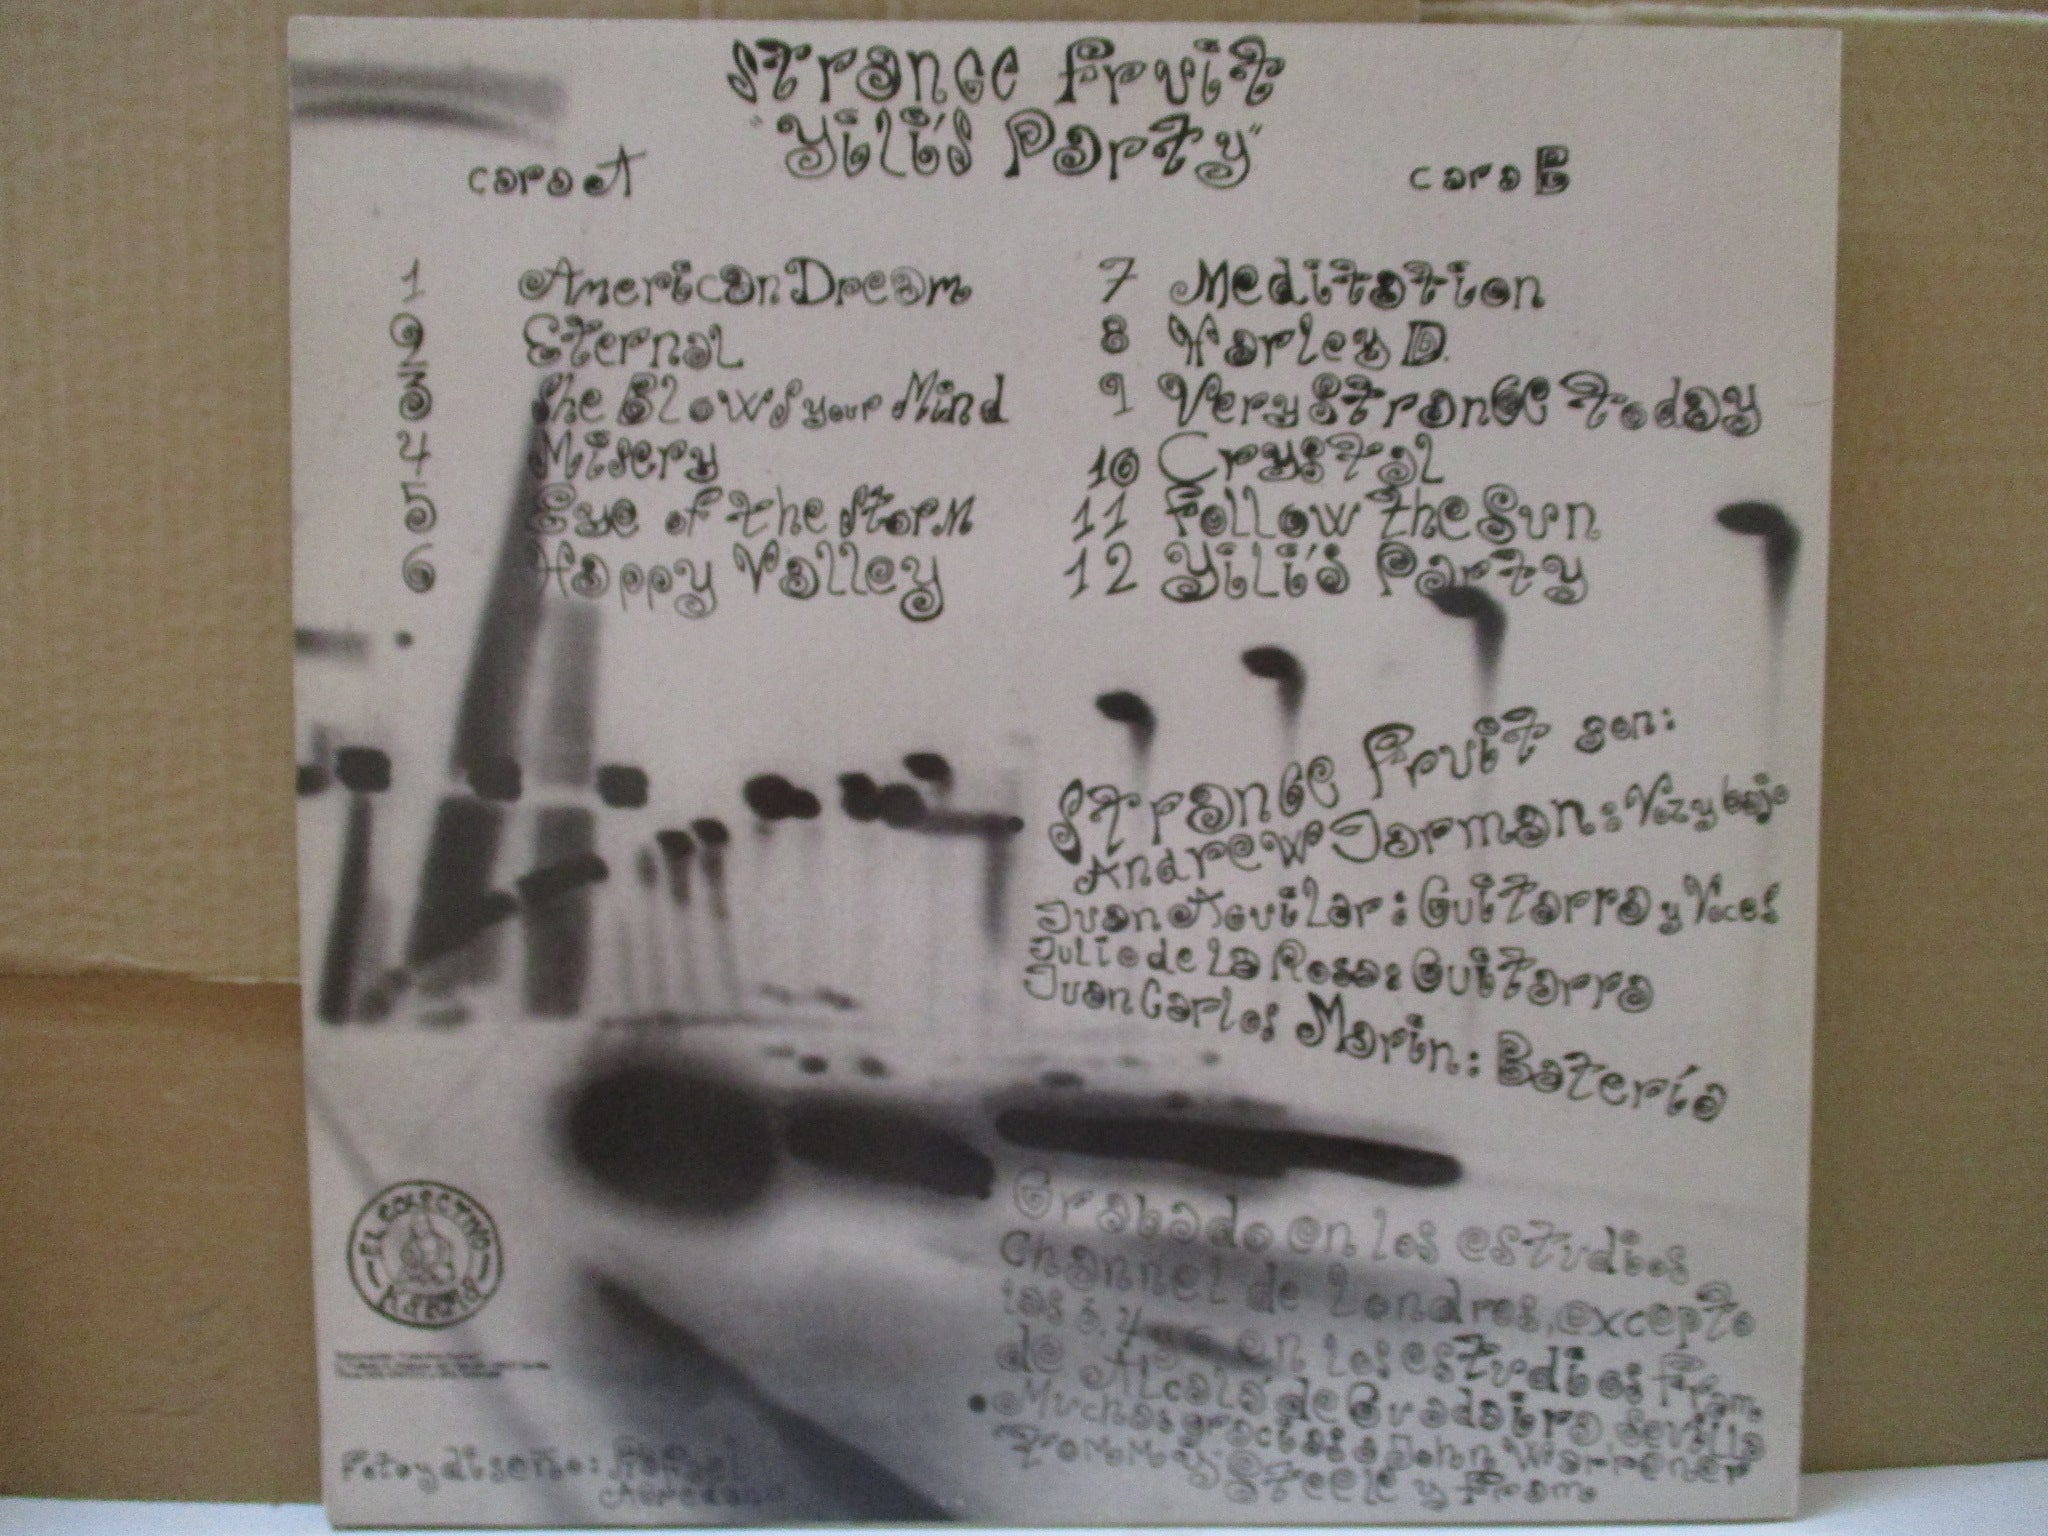 Strange Fruit
"Yili's Party"
cara A
1 American Dream
2 Eternal
3 She Blows your Mind
4 Misery
5 Eye of the Storm
6 Happy Valley
cara B
7 Meditation
8 Harley D.
9 Very Strange Today
10 Crystal
11 Follow the Sun
12 Yili's Party
Strange Fruit son:
Andrew Jarman: Voz y bajo
Juan Aguilar: Guitarra y Voces
Julio de La Rosa: Guitarra
Juan Carlos Marin: Batería
Grabado en los estudios
Channel de Londres, excepto
las 3, 4 en los estudios Fram
de Alcalá de Guadaira Sevilla
Muchas gracias a John Warrener
Trommy Steele y Fram.
EL COLECTIVO KARMA
Foto y diseño: Rafael